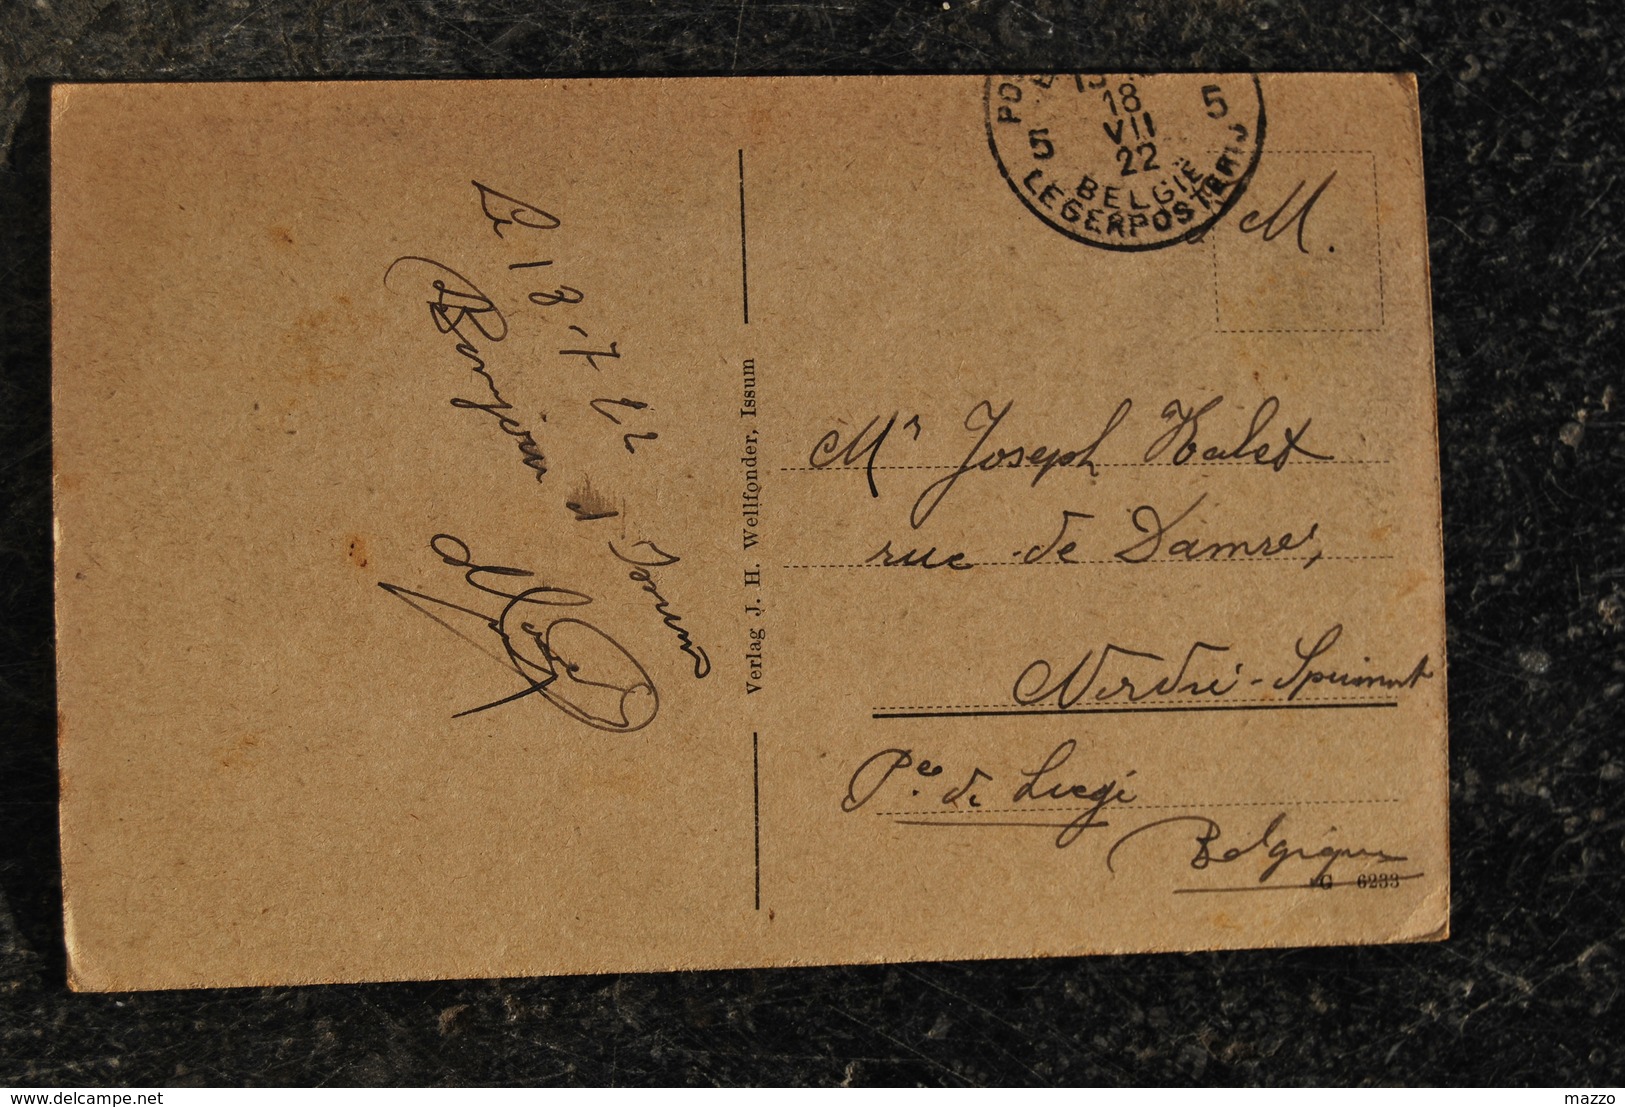 Le 18-7 22
Bonjour d'Issum
Verlag J. H. Wellfonder, Issum
18
VII
22
5 5
BELGIË
LEGERPOSTERIJ
M.
Mr Joseph Halet
rue de Damré,
Nordré-Sprimont
Pce de Liège
Belgique
G 6233
www.delcampe.net
mazzo